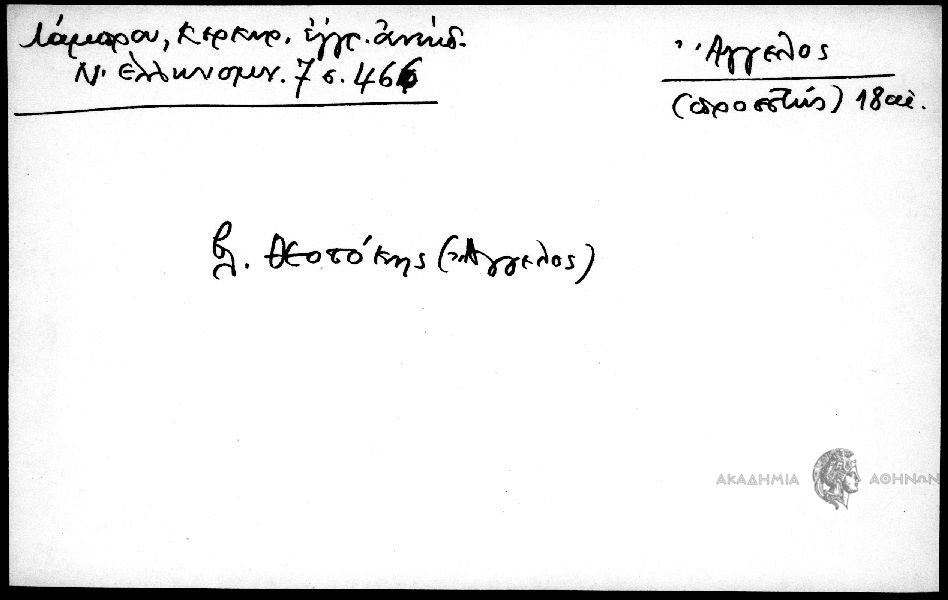 Λάμπρου, Κερκυρ. ἔγγρ. ἀνέκδ.
Ν. Ἑλληνομν. 7 σ. 466
Ἄγγελος
(προεστώς) 18 αἰ.
βλ. Θεοτόκης (Ἄγγελος)
ΑΚΑΔΗΜΙΑ ΑΘΗΝΩΝ